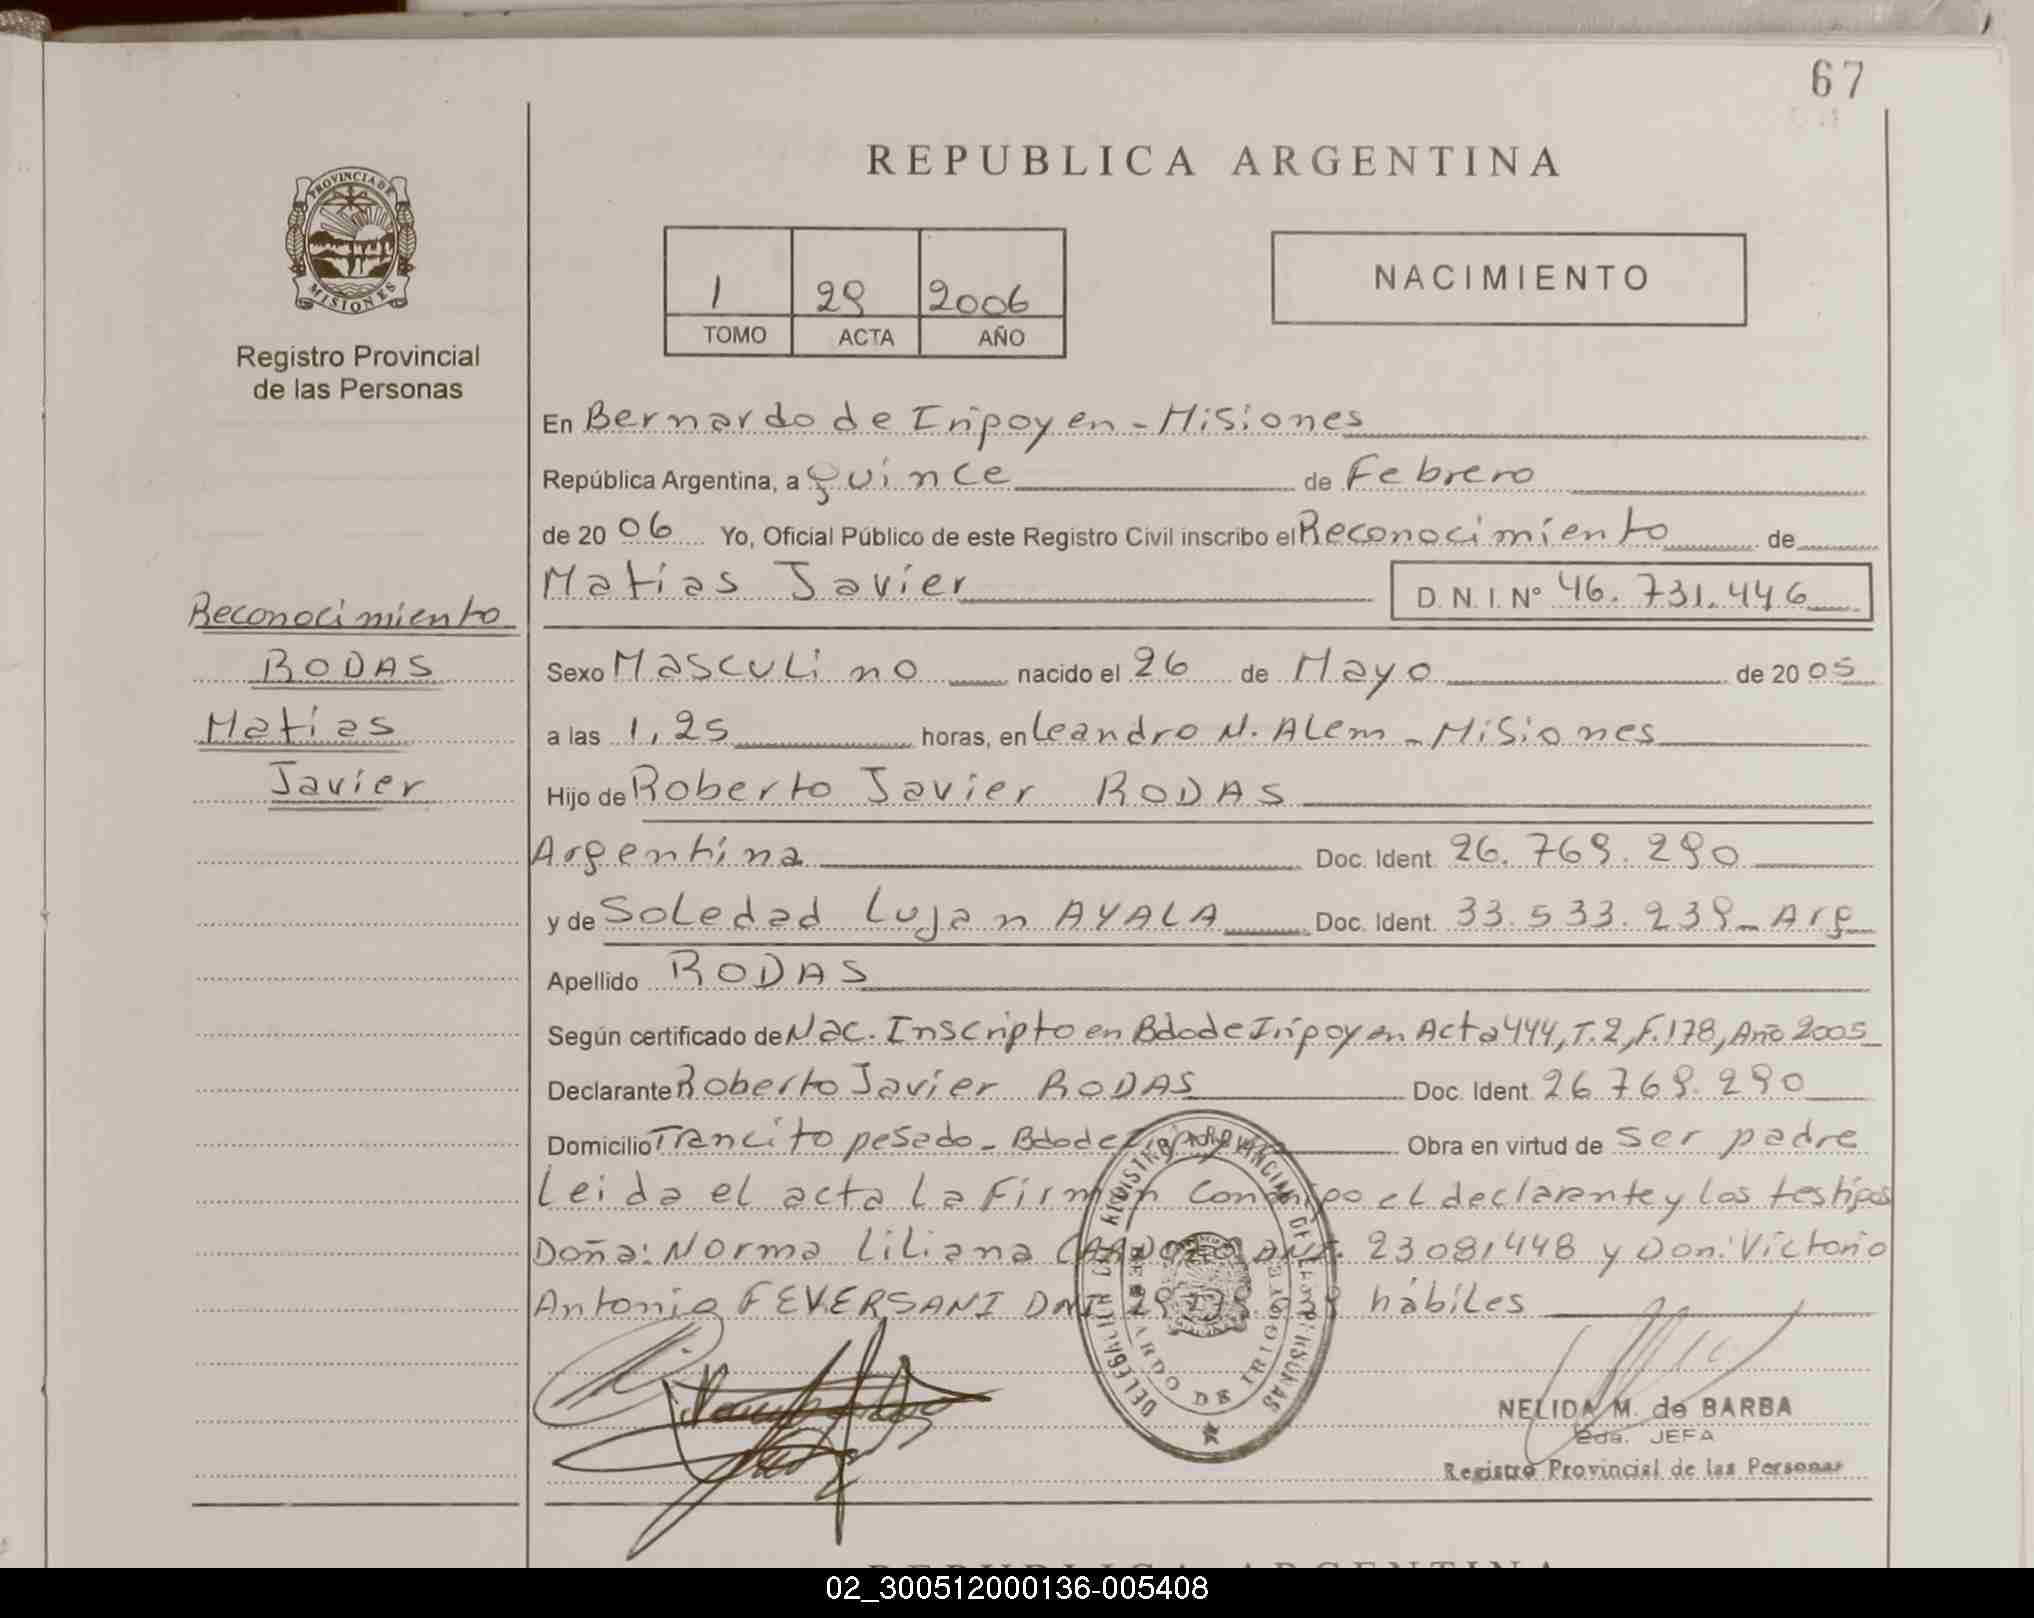 67
REPUBLICA ARGENTINA
PROVINCIA DE
MISIONES
Registro Provincial
de las Personas
1 29 2006
TOMO ACTA AÑO
NACIMIENTO
En Bernardo de Iripoyen - Misiones
República Argentina, a quince de Febrero
de 2006 Yo, Oficial Público de este Registro Civil inscribo el Reconocimiento de
Matias Javier D.N.I. Nº 46.731.446
Reconocimiento
RODAS
Matias
Javier
Sexo Masculino nacido el 26 de Mayo de 2005
a las 1,25 horas, en Leandro N. Alem - Misiones
Hijo de Roberto Javier RODAS
Argentina Doc. Ident. 26.769.290
y de Soledad Lujan AYALA Doc. Ident. 33.533.239 - Arg
Apellido RODAS
Según certificado de Nac. Inscripto en Bdo de Iripoyen Acta 444, T.2, F.178, Año 2005
Declarante Roberto Javier RODAS Doc. Ident. 26769.290
Domicilio Trancito pesado - Bdo de Obra en virtud de ser padre
Leida el acta la Firman Conmigo el declarante y los testigos
Doña: Norma Liliana 23081448 y Don: Victorio
Antonio FEVERSANI DNI hábiles
DELEGACION DEL REGISTRO PROVINCIAL DE LAS PERSONAS
BERNARDO DE IRIGOYEN
NELIDA M. de BARBA
2da. JEFA
Registro Provincial de las Personas
REPUBLICA ARGENTINA
02_300512000136-005408